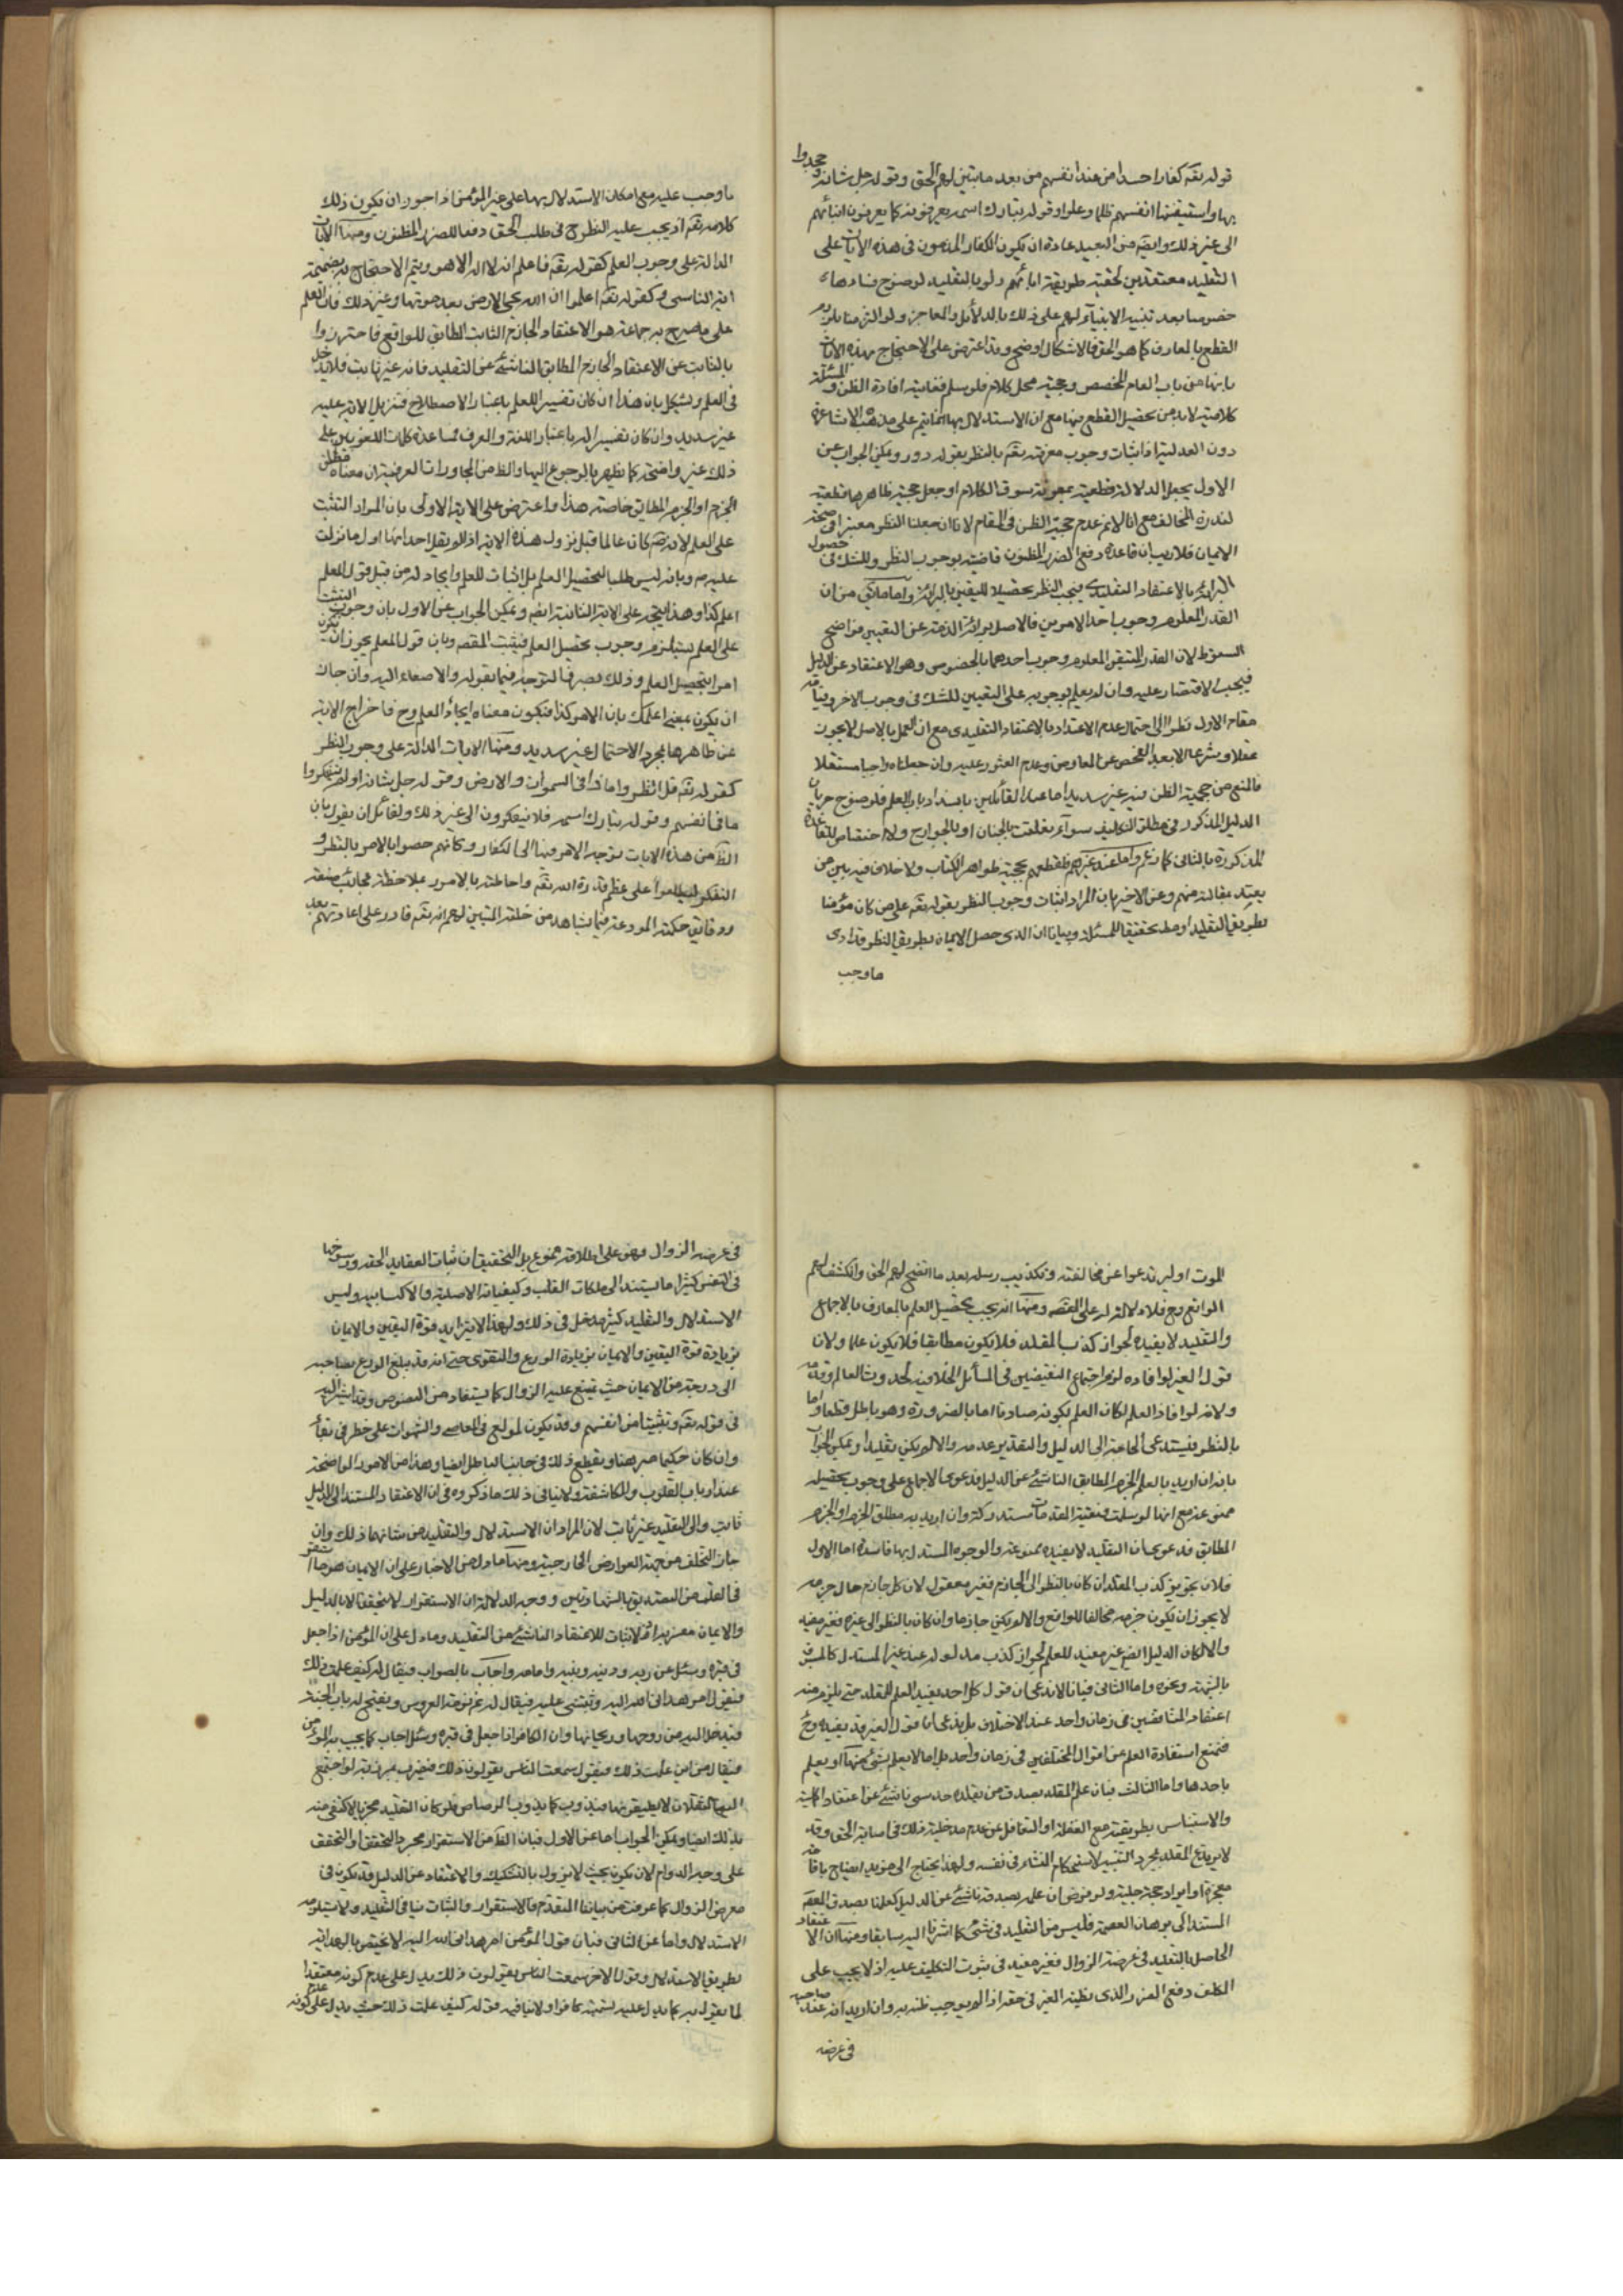 قوله تقه كفارا حسدا من عند انفسهم من بعد ما تبين لهم الحق وقوله جل شانه وجحدوا
بها واستيقنتها انفسهم ظلما وعلوا وقوله تبارك اسمه يعرفونه كما يعرفون ابنائهم
الى غير ذلك وايضه من البعيد عادة ان يكون الكفار المذمون فى هذه الايات على
التقليد معتقدين لحقية طريقة ابائهم ولو بالتقليد لوضوح فسادها
خصوصا بعد تنبيه الانبياء لهم على ذلك بالدلائل والمعاجز ولو التزمنا بلزوم
القطع بالمعارف كما هو الحق فالاشكال اوضح وقد اعترض على الاحتجاج بهذه الايات
بانها من باب العام المخصص وحجيته محل كلام فلو سلم فغايته افادة الظن والمسئلة
كلامية لا بد من تحصيل القطع فيها مع ان الاستدلال بها انما يتم على مذهب الاشاعرة
دون العدلية اذ اثبات وجوب معرفته تقه بالنظر بقوله دور ويمكن الجواب عن
الاول بجعل الدلالة قطعية بمعونة سوق الكلام او جعل حجية ظاهرها قطعية
لندرة المخالف مع انا لانم عدم حجية الظن فى المقام لانا ان جعلنا النظر معتبرا فى صحة
الايمان فلا ريب ان قاعدة دفع الضرر المظنون قاضية بوجوب النظر وللشك فى حصول
البرائة بالاعتقاد التقليدى فيجب النظر تحصيلا لليقين بالبرائة واما ما من ان
القدر المعلوم وجوب احد الامرين فالاصل برائة الذمة عن التعيين فواضح
السقوط لان القدر المتيقن المعلوم وجوب احدهما بالخصوص وهو الاعتقاد عن الدليل
فيجب الاقتصار عليه وان لم يعلم بوجوبه على التعيين للشك فى وجوب الاخر
مقام الاول نظرا الى احتمال عدم الاعتداد بالاعتقاد التقليدى مع ان العمل بالاصل لا يجوز
عقلا وشرعا الا بعد الفحص عن المعارض وعدم العثور عليه وان جعلناه واجبا مستقلا
فالمنع من حجية الظن فيه غير سديد اما عند القائلين بانسداد باب العلم فلوضوح جريان
الدليل المذكور فى مطلق التكليف سواء تعلقت بالجنان او بالجوارح ولا اختصاص للقاعدة
المذكورة بالثانى كما زعم واما عند غيرهم فلقطعهم بحجية ظواهر الكتاب ولا خلاف فيه بين من
يعتد بمقالته منهم وعن الاخير بان المراد اثبات وجوب النظر بقوله تقه على من كان مؤمنا
بطريق التقليد او تحقيقا للمسئلة وبيانا ان الذى حصل الايمان بطريق النظر قد ادى
ما وجب
ما وجب عليه مع امكان الاستدلال بها على غير المؤمن اذا جوز ان يكون ذلك
كلامه تقه اذ يجب عليه النظر ح فى طلب الحق دفعا للضرر المظنون ومنها الايات
الدالة على وجوب العلم كقوله تقه فاعلم انه لا اله الا هو ويتم الاحتجاج به بضميمة
اية التاسى وكقوله تقه اعلموا ان الله يحيى الارض بعد موتها وغير ذلك فان العلم
على ما صرح به جماعة هو الاعتقاد الجازم الثابت المطابق للواقع فاحترزوا
بالثابت عن الاعتقاد الجازم المطابق الناشئ عن التقليد فانه غير ثابت فلا يدخل
فى العلم ويشكل بان هذا ان كان تفسيرا للعلم باعتبار الاصطلاح فتنزيل الاية عليه
غير سديد وان كان تفسيرا له باعتبار اللغة والعرف فمساعدة كلمات اللغويين على
ذلك غير واضحة كما يظهر بالرجوع اليها والظ من المحاورات العرفية ان معناه مطلق
الجزم او الجزم المطابق خاصة هذا واعترض على الاية الاولى بان المراد التثبت
على العلم لانه ص كان عالما قبل نزول هذه الاية اذ لم يقل احد انها اول ما نزلت
عليه وبانه ليس طلبا لتحصيل العلم بل اثبات للعلم وايجاد له من قبيل قول المعلم
اعلم كذا وهذا يتجه على الاية الثانية ايضه ويمكن الجواب عن الاول بان وجوب التثبت
على العلم يستلزم وجوب تحصيل العلم فيثبت المقصه وبان قول المعلم يجوز ان يكون
امرا بتحصيل العلم وذلك بصرف التوجه فيما يقوله والاصغاء اليه وان جاز
ان يكون بمعنى اعلمك بان الامر كذا فيكون معناه ايجاد العلم وح فاخراج الاية
عن ظاهرها بمجرد الاحتمال غير سديد ومنها الايات الدالة على وجوب النظر
كقوله تقه قل انظروا ماذا فى السموات والارض وقوله جل شانه اولم يتفكروا
ما فى انفسهم وقوله تبارك اسمه فلا تتفكرون الى غير ذلك ولقائل ان يقول بان
الظ من هذه الايات توجه الامر فيها الى الكفار وكانهم خصوا بالامر بالنظر و
التفكر ليطلعوا على عظم قدرة الله تقه واحاطته بالامور بملاحظة عجائب صنعه
ودقايق حكمته المودعة فيما يشاهد من خلقه المتبين لهم انه تقه قادر على اعادتهم بعد
الموت او ليرتدعوا عن مخالفته وتكذيب رسله بعد ما اتضح لهم الحق وانكشف لهم
الواقع وح فلا دلالة له على المقصه ومنها انه يجب تحصيل العلم بالمعارف بالاجماع
والتقليد لا يفيده لجواز كذب المقلد فلا يكون مطابقا فلا يكون علما ولان
قول الغير لو افاده لزم اجتماع النقيضين فى المسائل الخلافية كحدوث العالم وقدمه
ولانه لو افاد العلم لكان العلم بكونه صادقا اما بالضرورة وهو باطل قطعا واما
بالنظر فيستدعى الحاجة الى الدليل والتقدير عدمه والا لم يكن تقليدا ويمكن الجواب
بانه ان اريد بالعلم الجزم المطابق الناشئ عن الدليل فدعوى الاجماع على وجوب تحصيله
ممنوعة مع انها لو سلمت فبقية المقدمات مستدركة وان اريد به مطلق الجزم او الجزم
المطابق فدعوى ان التقليد لا يفيده ممنوعة والوجوه المستدل بها فاسدة اما الاول
فلان تجويز كذب المقلد ان كان بالنظر الى الجازم فغير معقول لان كل جازم حال جزمه
لا يجوز ان يكون جزمه مخالفا للواقع والا لم يكن جازما وان كان بالنظر الى غيره فغير مضر
والا لكان الدليل ايضه غير مفيد للعلم لجواز كذب مدلوله عند غير المستدل كالمسبوق
بالشبهة ونحوه واما الثانى فبانا لا ندعى ان قول كل احد يفيد العلم للمقلد حتى يلزم منه
اعتقاد المتناقضين فى زمان واحد عند الاختلاف بل ندعى ان قول الغير قد يفيده وح
فتمنع استفادة العلم من اقوال المختلفين فى زمان واحد بل اما لا يعلم بشئ منها او يعلم
باحدها واما الثالث فبان علم المقلد بصدق من يقلده حدسى ناشئ عن اعتقاد اهليته
والاستيناس بطريقته مع الغفلة او التغافل عن عدم مدخلية ذلك فى اصابة الحق وقد
لا يرتدع المقلد بمجرد التنبيه لاستحكام النشاء فى نفسه ولهذا يحتاج الى مزيد ايضاح باقامة
معجزة او ايراد حجة جلية ولو فرض ان علمه بصدقه ناشئ عن الدليل كعلمنا بصدق المعصوم
المستند الى برهان العصمة فليس من التقليد فى شئ كما اشرنا اليه سابقا ومنها ان الاعتقاد
الحاصل بالتقليد فى عرضة الزوال فغير مفيد فى ثبوت التكليف عليه اذ لا يجب على
المكلف دفع الضرر الذى يظنه الغير فى حقه اذا لم يوجب ظنه به وان اريد انه عند صاحبه
فى عرضه
فى عرضه الزوال فهو على اطلاقه ممنوع بل التحقيق ان ثبات العقايد الحقه ورسوخها
فى النفس كثيرا ما يستند الى ملكات القلب وكيفياته الاصلية والاكتسابيه وليس
الاستدلال والتقليد كثير مدخل فى ذلك ولهذا الا يتزايد قوة اليقين والايمان
بزيادة قوة اليقين والايمان بزيادة الورع والتقوى حتى انه قد يبلغ الورع بصاحبه
الى درجة من الايمان حيث يمتنع عليه الزوال كما يستفاد من النصوص وقد اشير اليه
فى قوله تقه وتثبيتا من انفسهم وقد يكون لمولع فى المعاصى والشهوات على خطر فى
وان كان حكيما مبرهنا ويقطع ذلك فى جانب الباطل ايضا وهذا من الامور الواضحة
عند ارباب القلوب والمكاشفة ولا ينافى ذلك ما ذكروه فى ان الاعتقاد المستند الى الدليل
ثابت والى التقليد غير ثابت لان المراد ان الاستدلال والتقليد من شانهما ذلك وان
جاز التخلف من جهة العوارض الخارجية ومنها ما دل من الاخبار على ان الايمان هو ما استقر
فى القلب من التصديق بالشهادتين ووجه الدلالة ان الاستقرار لا يتحقق الا بالدليل
والايمان معتبر به اذ لا ثبات للاعتقاد الناشئ من التقليد وما دل على ان المؤمن اذا جعل
فى قبره وسئل عن ربه ودينه ونبيه وامامه واجاب بالصواب فيقال له كيف علمت ذلك
فيقول امر هدانى الله اليه وثبتنى عليه فيقال له نم نومة العروس ويفتح له باب الجنة
فيدخل اليه من روحها وريحانها وان الكافر اذا جعل فى قبره وسئل اجاب كما يجيب به المؤمن
فيقال من اين علمت ذلك فيقول سمعت الناس يقولون ذلك فيضرب بمرزبة لو اجتمع
اليها الثقلان لا يطيقونها فيذوب كما يذوب الرصاص فلو كان التقليد مجزيا لاكتفى منه
بذلك ايضا ويمكن الجواب اما عن الاول فبان الظ من الاستقرار مجرد التحقق او التحقق
على وجه الدوام لان يكون بحيث لا يزول بالتشكيك والاعتقاد عن الدليل قد يكون فى
معرض الزوال كما عرفت من بياننا المتقدم فالاستقرار والثبات ينافى التقليد ولا يستلزمه
الاستدلال واما عن الثانى فبان قول المؤمن امر هدانى الله اليه لا يختص بالهداية
بطريق الاستدلال وقول الاخر سمعت الناس يقولون ذلك يدل على عدم كونه معتقدا
لما يقول به كما يدل عليه تسميته كافرا ولا ينافيه قوله كيف علمت ذلك حيث يدل على كونه